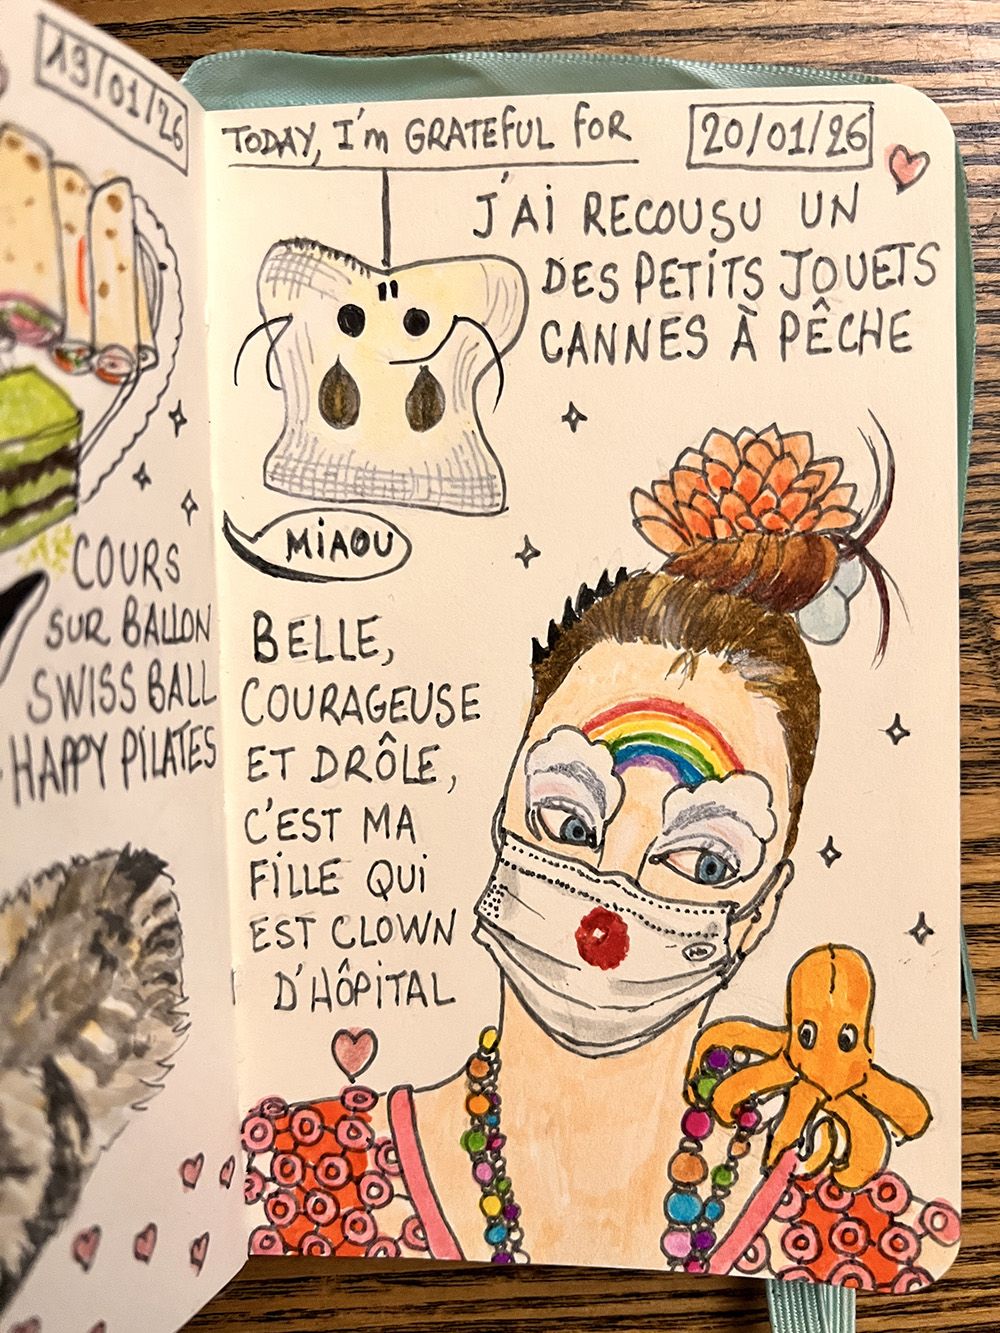 13/01/26
COURS
SUR BALLON
SWISS BALL
HAPPY PILATES
TODAY, I'm GRATEFUL FOR
20/01/26
J'Ai RECOUSU UN
DES PETITS JOUETS
CANNES À PÊCHE
MiAOU
BELLE,
COURAGEUSE
ET DRÔLE,
C'EST MA
FiLLE QUi
EST CLOWN
D'HÔPiTAL